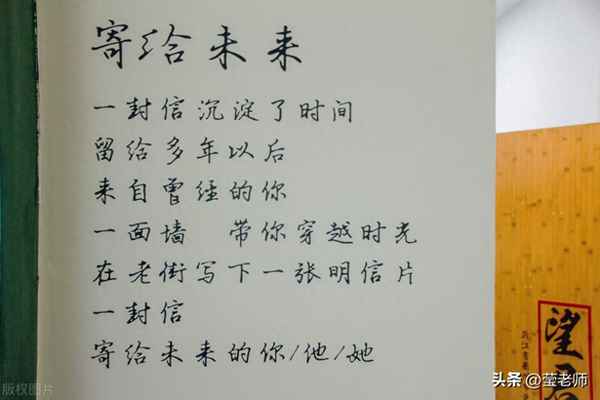 寄给未来
一封信沉淀了时间
留给多年以后
来自曾经的你
一面墙 带你穿越时光
在老街写下一张明信片
一封信
寄给未来的你/他/她
望君
版权图片
头条 @莹老师